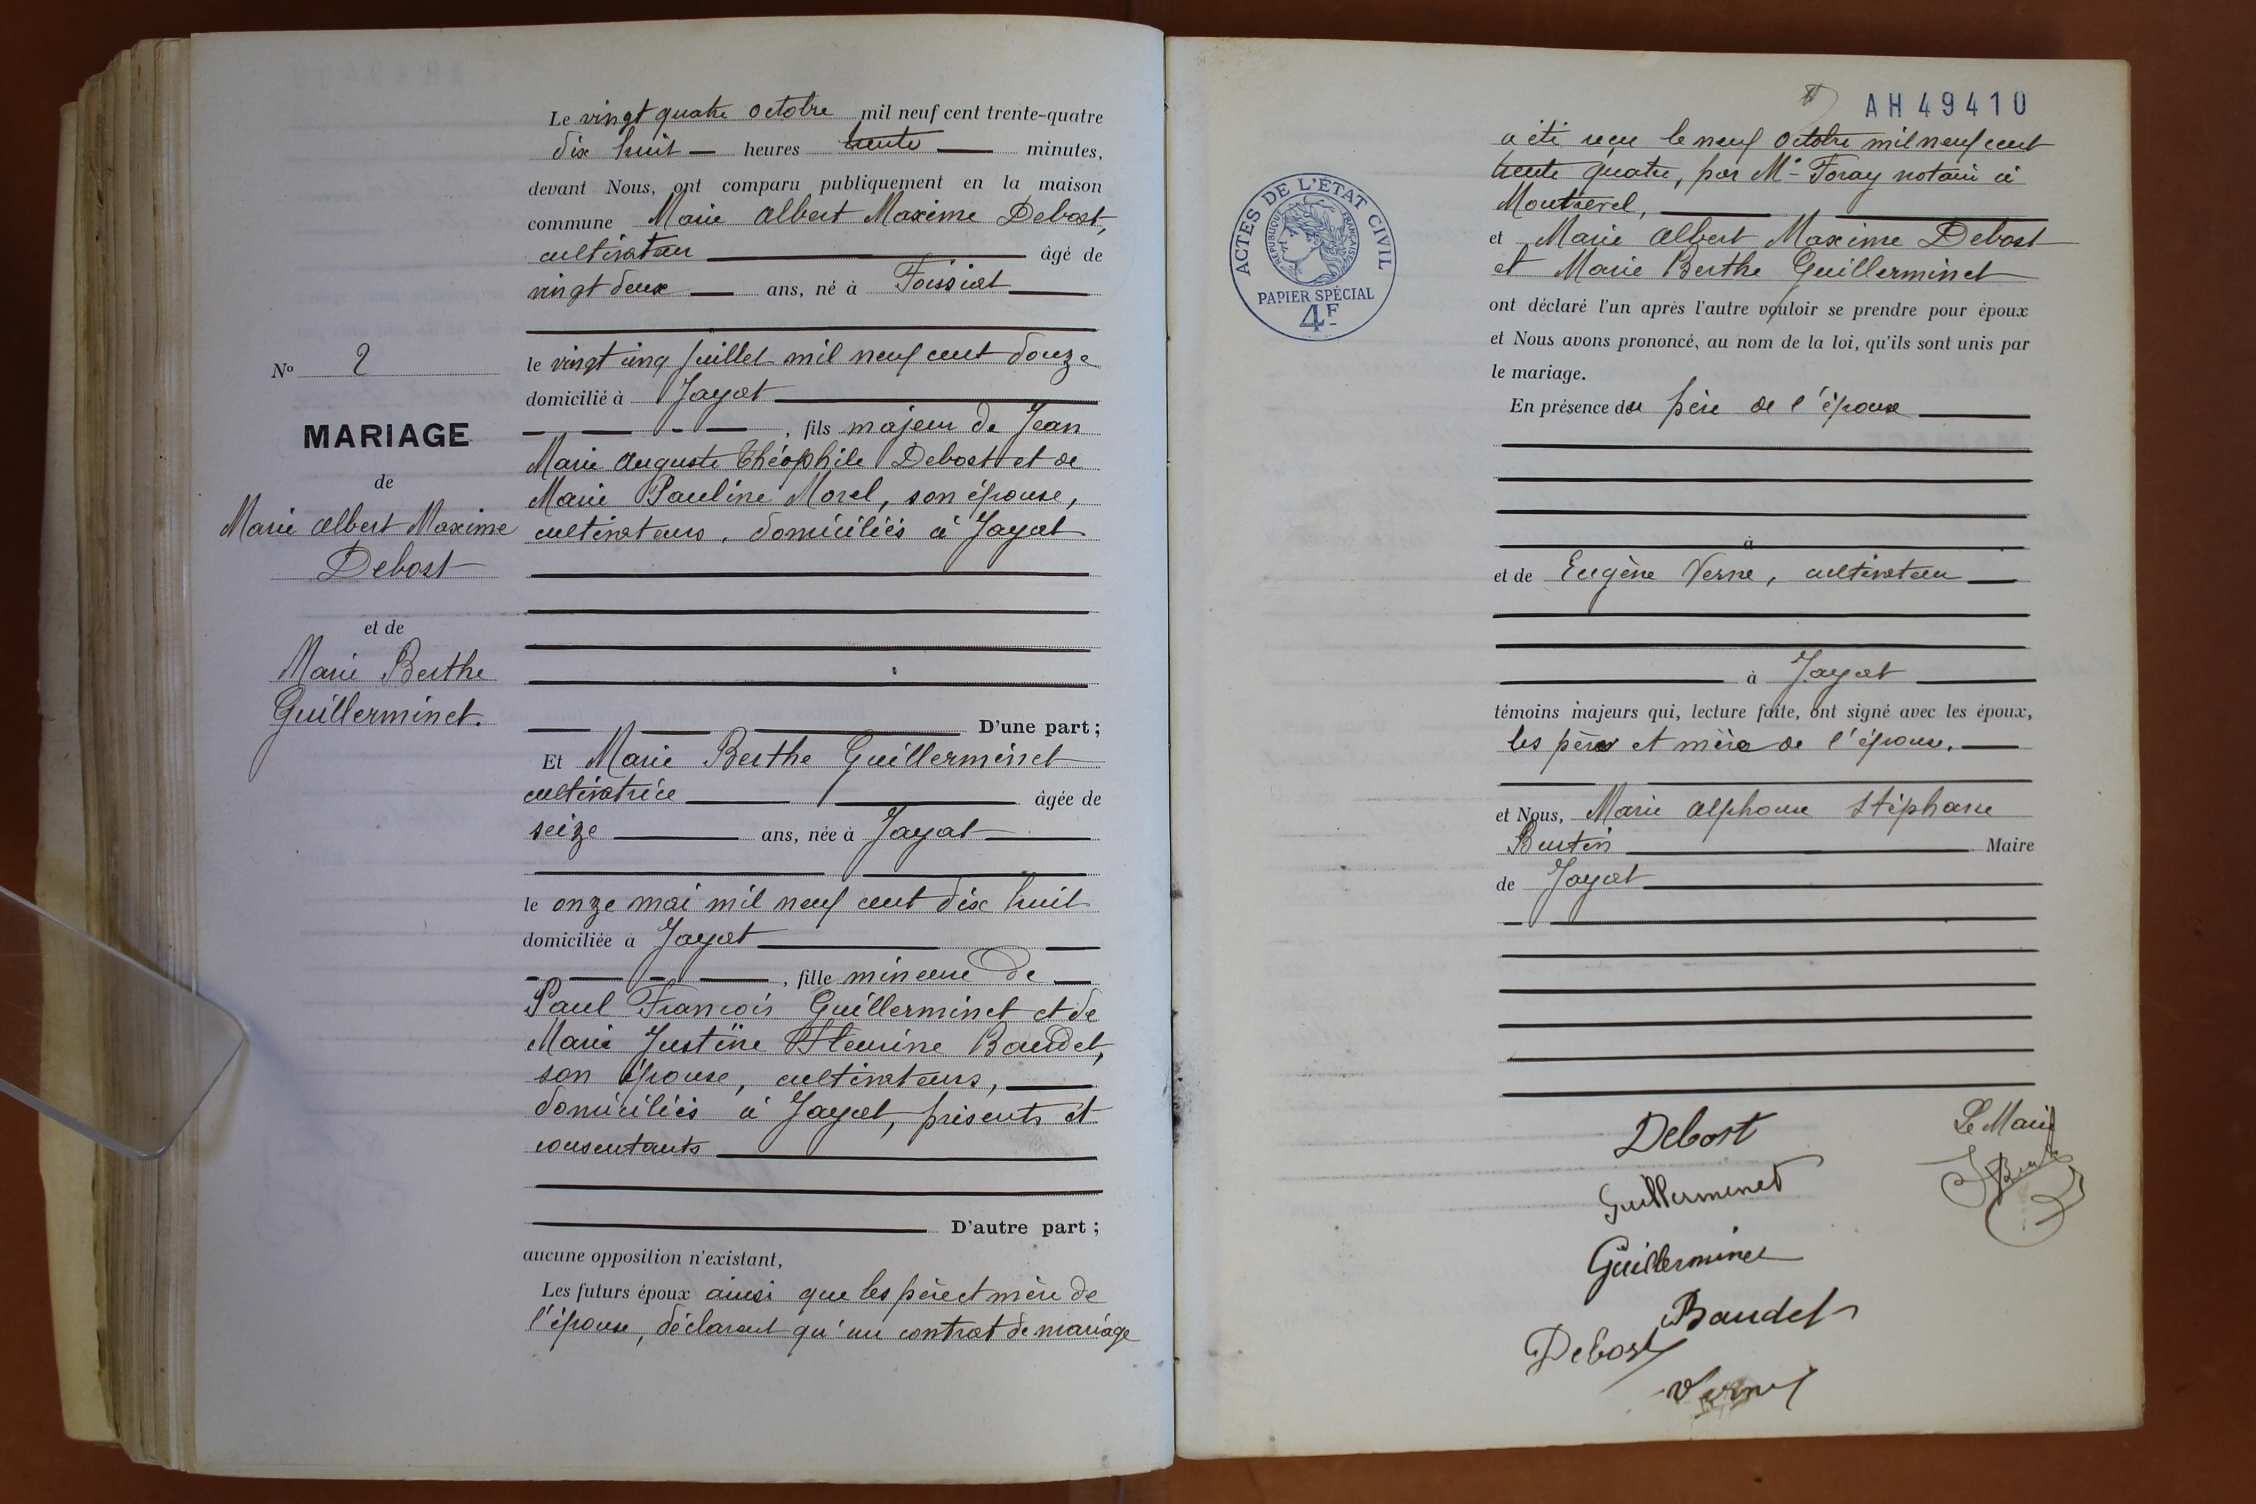 Le vingt quatre octobre mil neuf cent trente-quatre
dix huit heures trente minutes,
devant Nous, ont comparu publiquement en la maison
commune Marie Albert Maxime Debost,
cultivateur âgé de
vingt deux ans, né à Foissiat
le vingt cinq juillet mil neuf cent douze
domicilié à Jayat
, fils majeur de Jean
Marie Auguste Théophile Debost et de
Marie Pauline Morel, son épouse,
cultivateurs, domiciliés à Jayat
D'une part ;
Et Marie Berthe Guillerminet
cultivatrice âgée de
seize ans, née à Jayat
le onze mai mil neuf cent dix huit
domiciliée à Jayat
, fille mineure de
Paul François Guillerminet et de
Marie Justine Fleurine Baudet,
son épouse, cultivateurs,
domiciliés à Jayat, présents et
consentants
D'autre part ;
aucune opposition n'existant,
Les futurs époux ainsi que les père et mère de
l'épouse, déclarent qu'un contrat de mariage
No 2
MARIAGE
de
Marie Albert Maxime
Debost
et de
Marie Berthe
Guillerminet.
AH 49410
ACTES DE L'ÉTAT CIVIL
RÉPUBLIQUE FRANÇAISE
PAPIER SPÉCIAL
4F
a été reçu le neuf octobre mil neuf cent
trente quatre, par Me Foray notaire à
Montrevel,
et Marie Albert Maxime Debost
et Marie Berthe Guillerminet
ont déclaré l'un après l'autre vouloir se prendre pour époux
et Nous avons prononcé, au nom de la loi, qu'ils sont unis par
le mariage.
En présence du père de l'époux
à
et de Eugène Verne, cultivateur
à Jayat
témoins majeurs qui, lecture faite, ont signé avec les époux,
les père et mère de l'épouse.
et Nous, Marie Alphonse Stéphane
Burtin Maire
de Jayat
Debost
Le Maire
Guillerminet
Guillerminet
Baudet
Debost
Verne